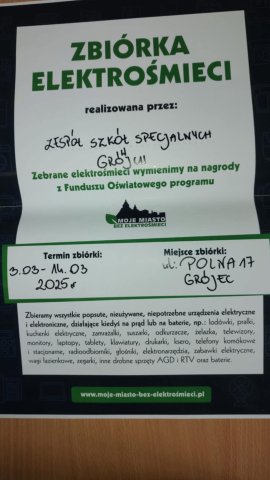 ZBIÓRKA
ELEKTROŚMIECI
realizowana przez:
ZESPÓŁ SZKÓŁ SPECJALNYCH
W
GRÓJCU
Zebrane elektrośmieci wymienimy na nagrody
z Funduszu Oświatowego programu
MOJE MIASTO
BEZ ELEKTROŚMIECI
Termin zbiórki:
3.03 - 14.03
2025r
Miejsce zbiórki:
ul: POLNA 17
GRÓJEC
Zbieramy wszystkie popsute, nieużywane, niepotrzebne urządzenia elektryczne
i elektroniczne, działające kiedyś na prąd lub na baterie, np.: lodówki, pralki,
kuchenki elektryczne, zamrażalki, suszarki, odkurzacze, żelazka, telewizory,
monitory, laptopy, tablety, klawiatury, drukarki, ksero, telefony komórkowe
i stacjonarne, radioodbiorniki, głośniki, elektronarzędzia, zabawki elektryczne,
wagi łazienkowe, zegarki, inne drobne sprzęty AGD i RTV oraz baterie.
www.moje-miasto-bez-elektrosmieci.pl